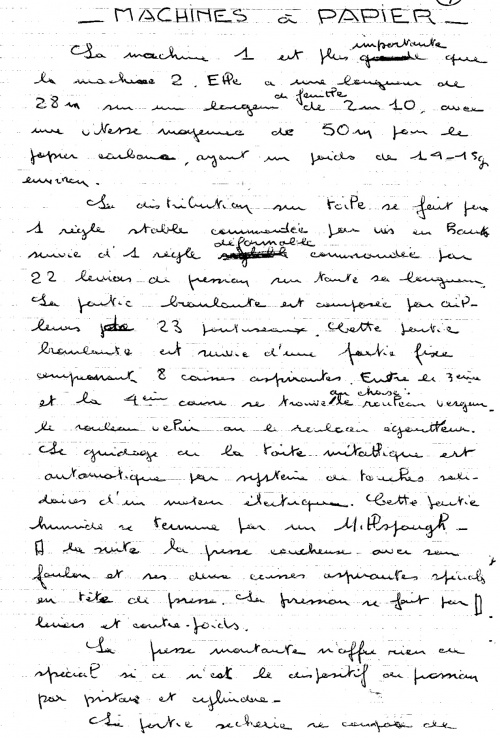 MACHINES à PAPIER
La machine 1 est plus importante que
la machine 2. Elle a une longueur de
28 m sur un largeur de feuille de 2 m 10, avec
une vitesse moyenne de 50 m pour le
papier carbone, ayant un poids de 14-15g
environ.
La distribution sur toile se fait par
1 règle stable commandée par vis en Bout
suivie d'1 règle déformable commandée par
22 leviers de pression sur toute sa longueur.
La partie branlante est composée par ail-
leurs 23 pontuseaux. Cette partie
branlante est suivie d'une partie fixe
comprenant 8 caisses aspirantes. Entre le 3ème
et la 4ème caisse se trouve au choix: le rouleau vergeur
le rouleau vélin ou le rouleau égoutteur.
Le guidage de la toile métallique est
automatique par système de touches soli-
daires d'un moteur électrique. Cette partie
humide se termine par un Millspaugh -
A la suite la presse coucheuse avec son
foulon et ses deux caisses aspirantes spéciales
en tête de presse. La pression se fait par
leviers et contre-poids.
La presse montante n'offre rien de
spécial si ce n'est le dispositif de pression
par pistons et cylindre -
La partie sécherie se compose de